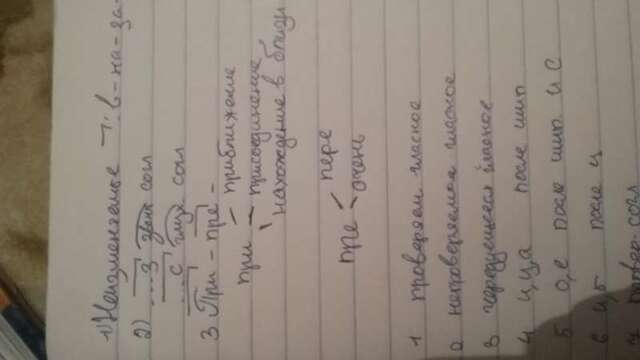 1) Неизменяемые ¬: в- на- за-
2) ...з звонк согл
...с глух. согл
3 При - пре -
приближение
при присоединение
нахождение в близи
пере
пре
очень
1 проверяем гласное
2 непроверяемое гласное
3 чередующееся гласное
4 и, у, а после шип
5 о, е после шип. и С
6 и, ы после ц
7 провер. согл